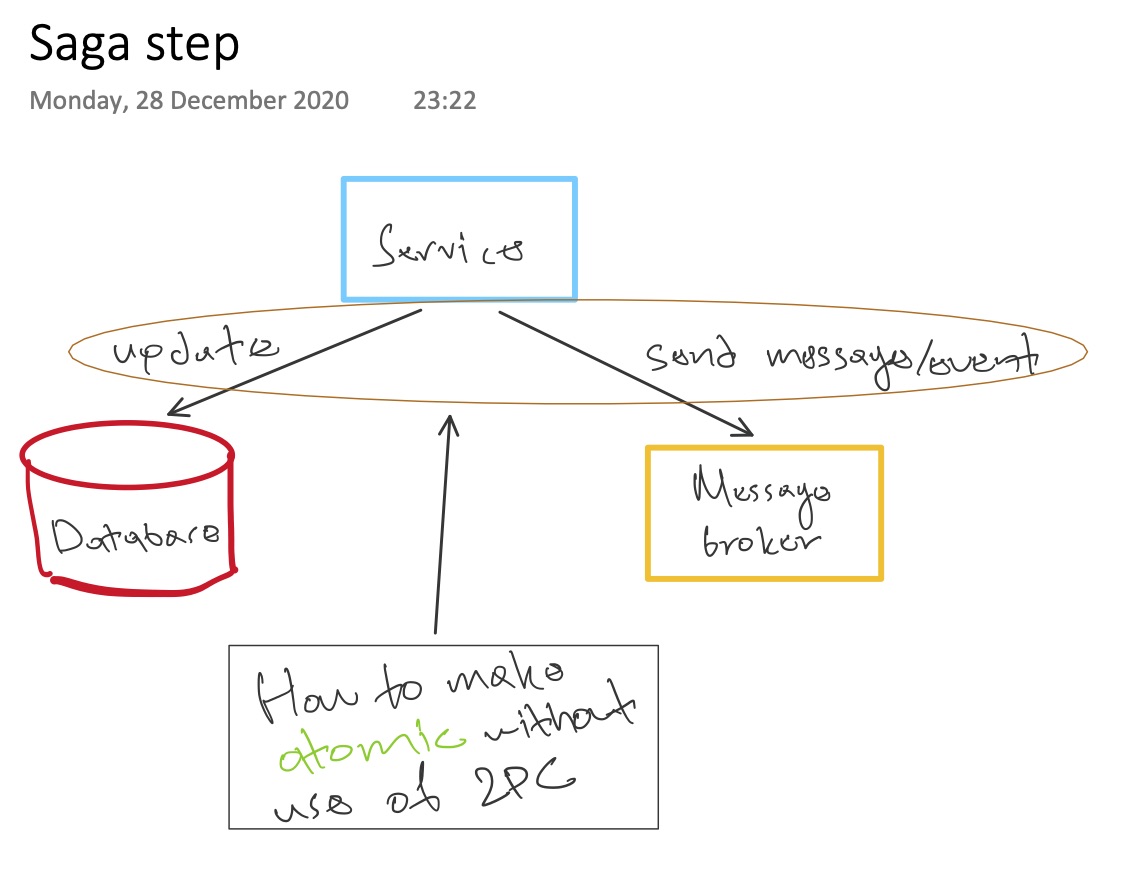 Saga step
Monday, 28 December 2020 23:22
Service
update
send message/event
Database
Message
broker
How to make
atomic without
use of 2PC